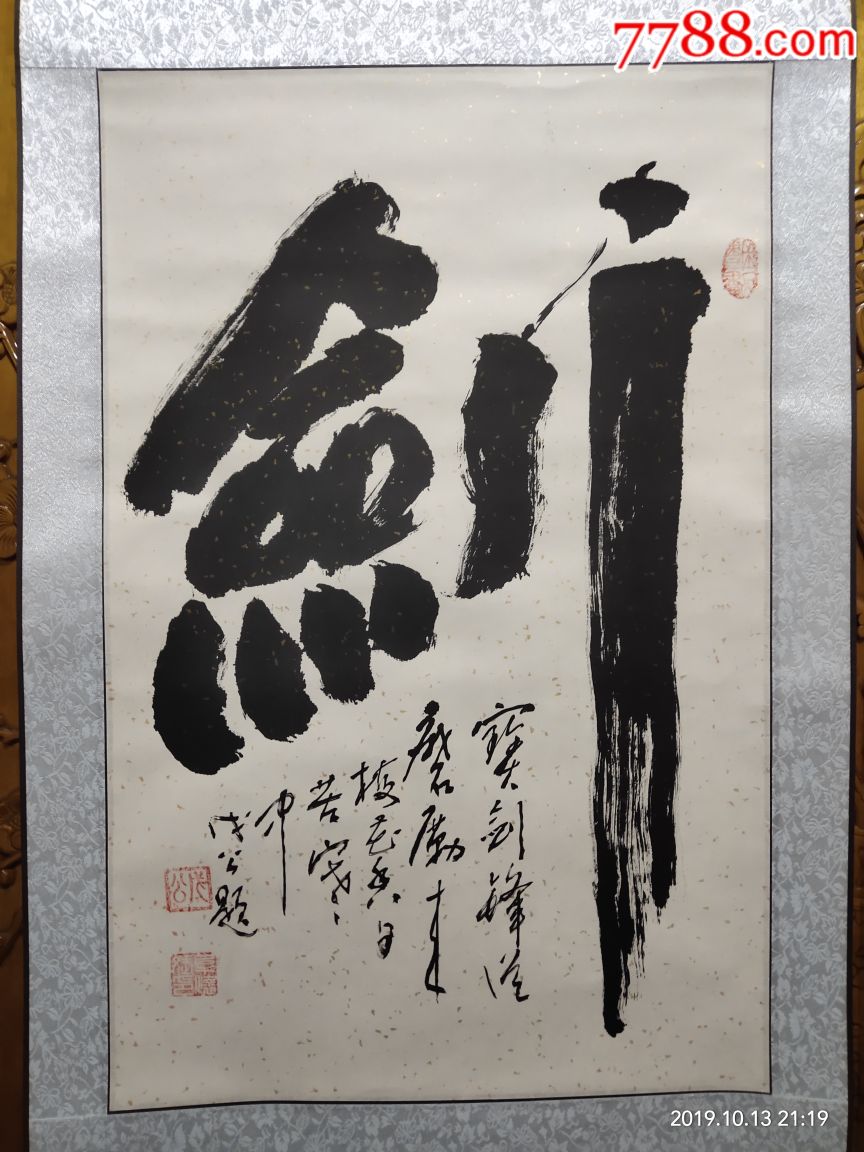 7788.com
劍
寶劍鋒從
磨勵来
梅花香自
苦寒
中
公題
2019.10.13 21:19